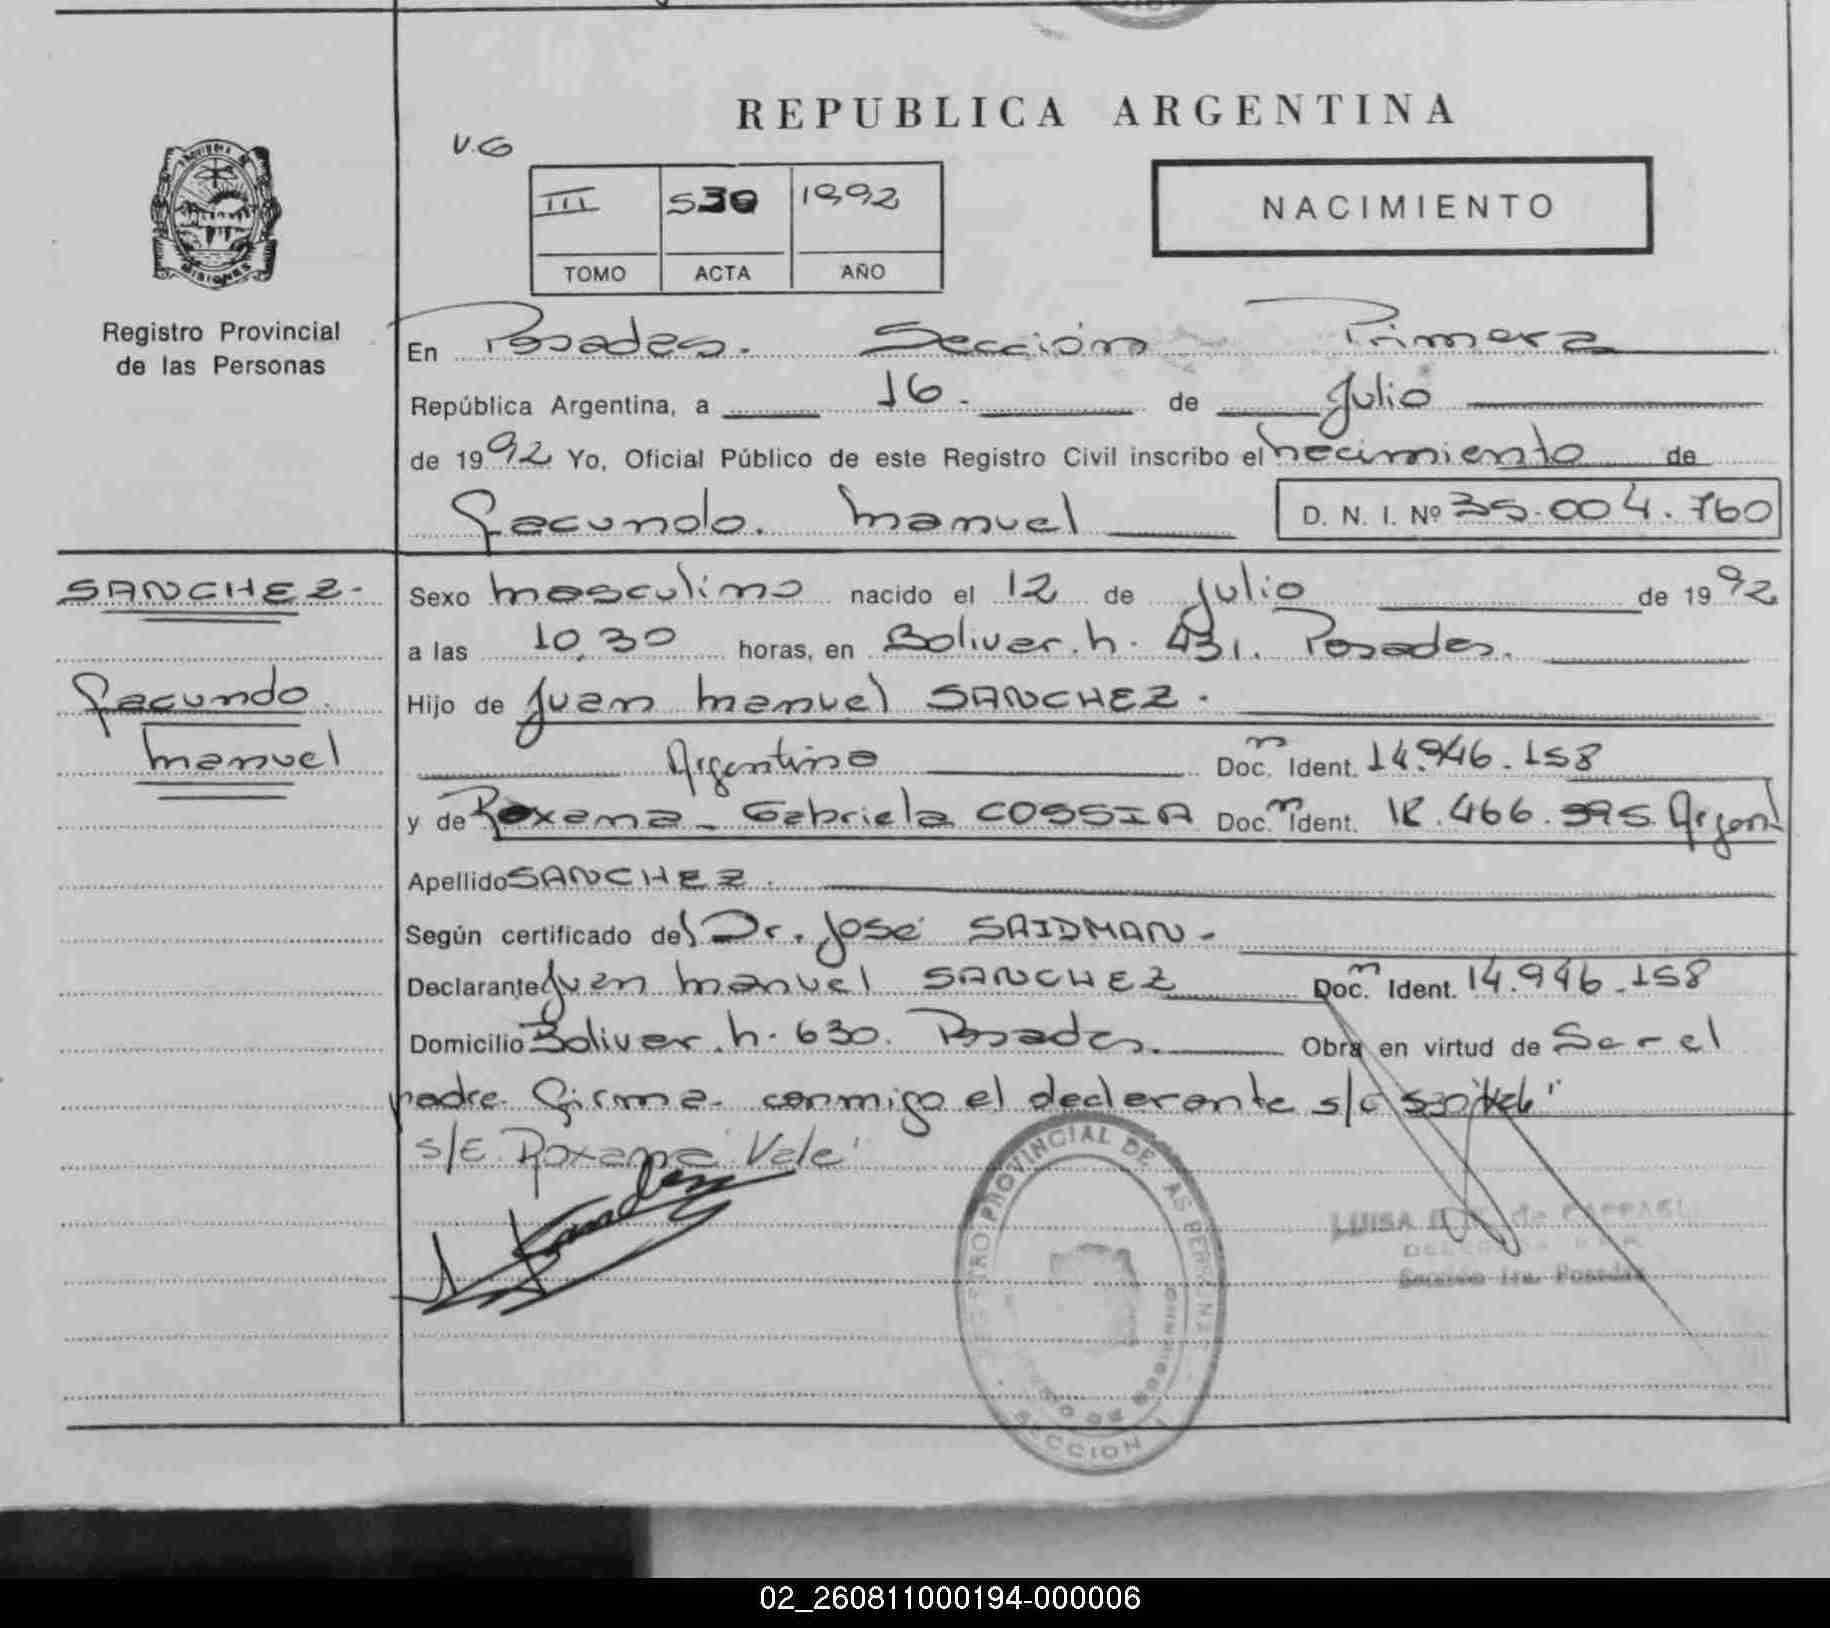 REPUBLICA ARGENTINA
V.G
III 530 1992
TOMO ACTA AÑO
NACIMIENTO
MISIONES
Registro Provincial
de las Personas
En Posadas. Sección Primera
República Argentina, a 16. de Julio
de 1992 Yo, Oficial Público de este Registro Civil inscribo el nacimiento de
Facundo. Manuel D. N. I. Nº 35.004.760
SANCHEZ.
Facundo.
Manuel
Sexo masculino nacido el 12 de Julio de 1992
a las 10,30 horas, en Bolivar. h. 431. Posadas.
Hijo de Juan Manuel SANCHEZ.
Argentino Doc. m Ident. 14.946.158
y de Roxana Gabriela COSSIA Doc. m Ident. 466.595 Argent
Apellido SANCHEZ.
Según certificado del Dr. José SAIDMAN.
Declarante Juan Manuel SANCHEZ Doc. m Ident. 14.946.158
Domicilio Bolivar. h. 630. Posadas. Obra en virtud de Ser el
padre. Firma conmigo el declarante s/c 530
s/E Roxana Vale'
REGISTRO PROVINCIAL DE LAS PERSONAS
SECCION
LUISA de
Sección 1ra. Posadas
02_260811000194-000006